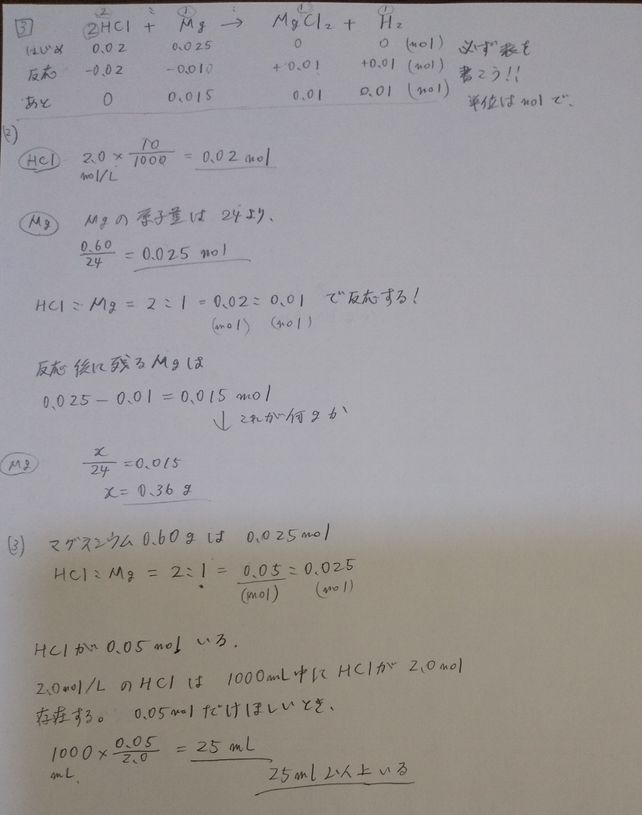 3 2HCl + Mg → MgCl2 + H2
2 : 1 : 1 1
はじめ 0.02 0.025 0 0 (mol) 必ず表を
反応 -0.02 -0.010 +0.01 +0.01 (mol) 書こう!!
あと 0 0.015 0.01 0.01 (mol) 単位はmolで、
(2)
HCl 2.0 × 10/1000 = 0.02 mol
mol/L
Mg Mgの原子量は 24より、
0.60/24 = 0.025 mol
HCl : Mg = 2 : 1 = 0.02 : 0.01 で反応する!
(mol) (mol)
反応後に残るMgは
0.025 - 0.01 = 0.015 mol
↓ これが何gか
Mg x/24 = 0.015
x = 0.36 g
(3) マグネシウム 0.60g は 0.025mol
HCl : Mg = 2 : 1 = 0.05 : 0.025
(mol) (mol)
HClが 0.05 mol いる.
2.0mol/L のHClは 1000mL中に HClが 2.0mol
存在する。 0.05molだけほしいとき、
1000 × 0.05/2.0 = 25 mL
mL
25ml以上いる